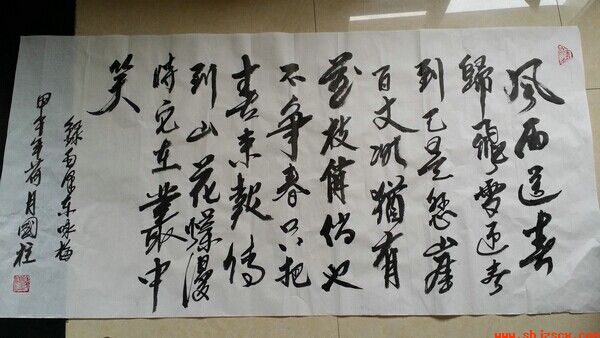 風雨送春
歸飛雪迎春
到已是悬崖
百丈冰猶有
花枝俏俏也
不爭春只把
春來報待
到山花爛漫
時它在叢中
笑
錄毛澤東咏梅
甲午年荷月國柱